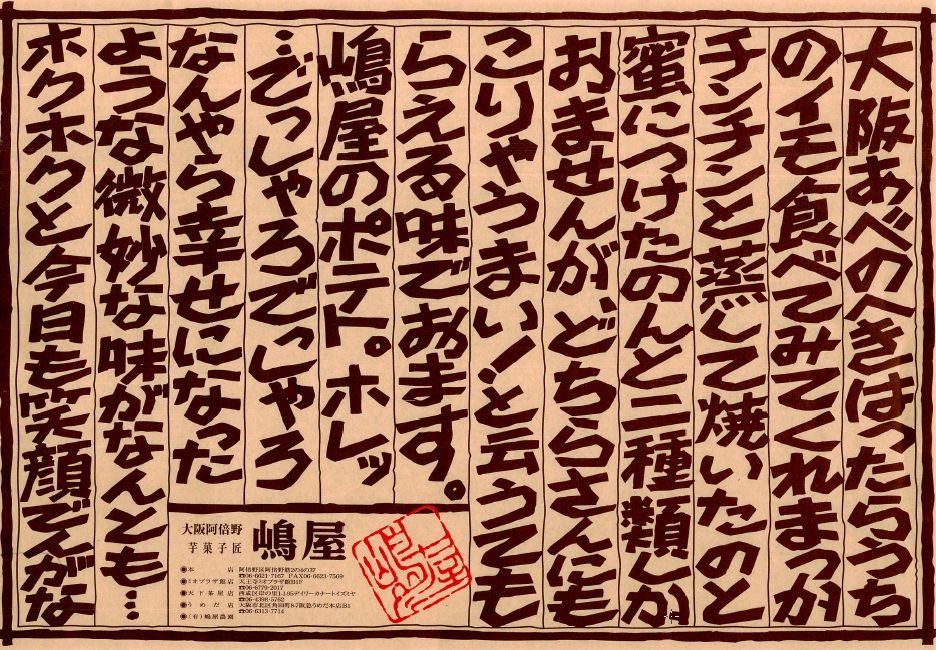 大阪あべのへきはったらうち
のイモ食べてみてくれまっか
チンチンと蒸して焼いたのと
蜜につけたのんと二種類しか
おませんが、どちらさんにも
こりゃうまい!と云うても
らえる味でおます。
嶋屋のポテト。ホレッ
…でっしゃろでっしゃろ
なんやら幸せになった
ような微妙な味がなんとも…
ホクホクと今日も笑顔でんがな
大阪阿倍野
芋菓子匠
嶋屋
◉本店 阿倍野区阿倍野筋2の4の37
☎06-6621-7167 FAX06-6623-7569
オプラザ館店 天王寺ミオプラザ館B1F
☎06-6779-2017
◉天下茶屋店 西成区岸の里1-1-95デイリーカナートイズミヤ
☎06-4398-5762
◉うめだ店 大阪市北区角田町8-7阪急うめだ本店B1
☎06-6313-7714
◉(有)嶋屋農園